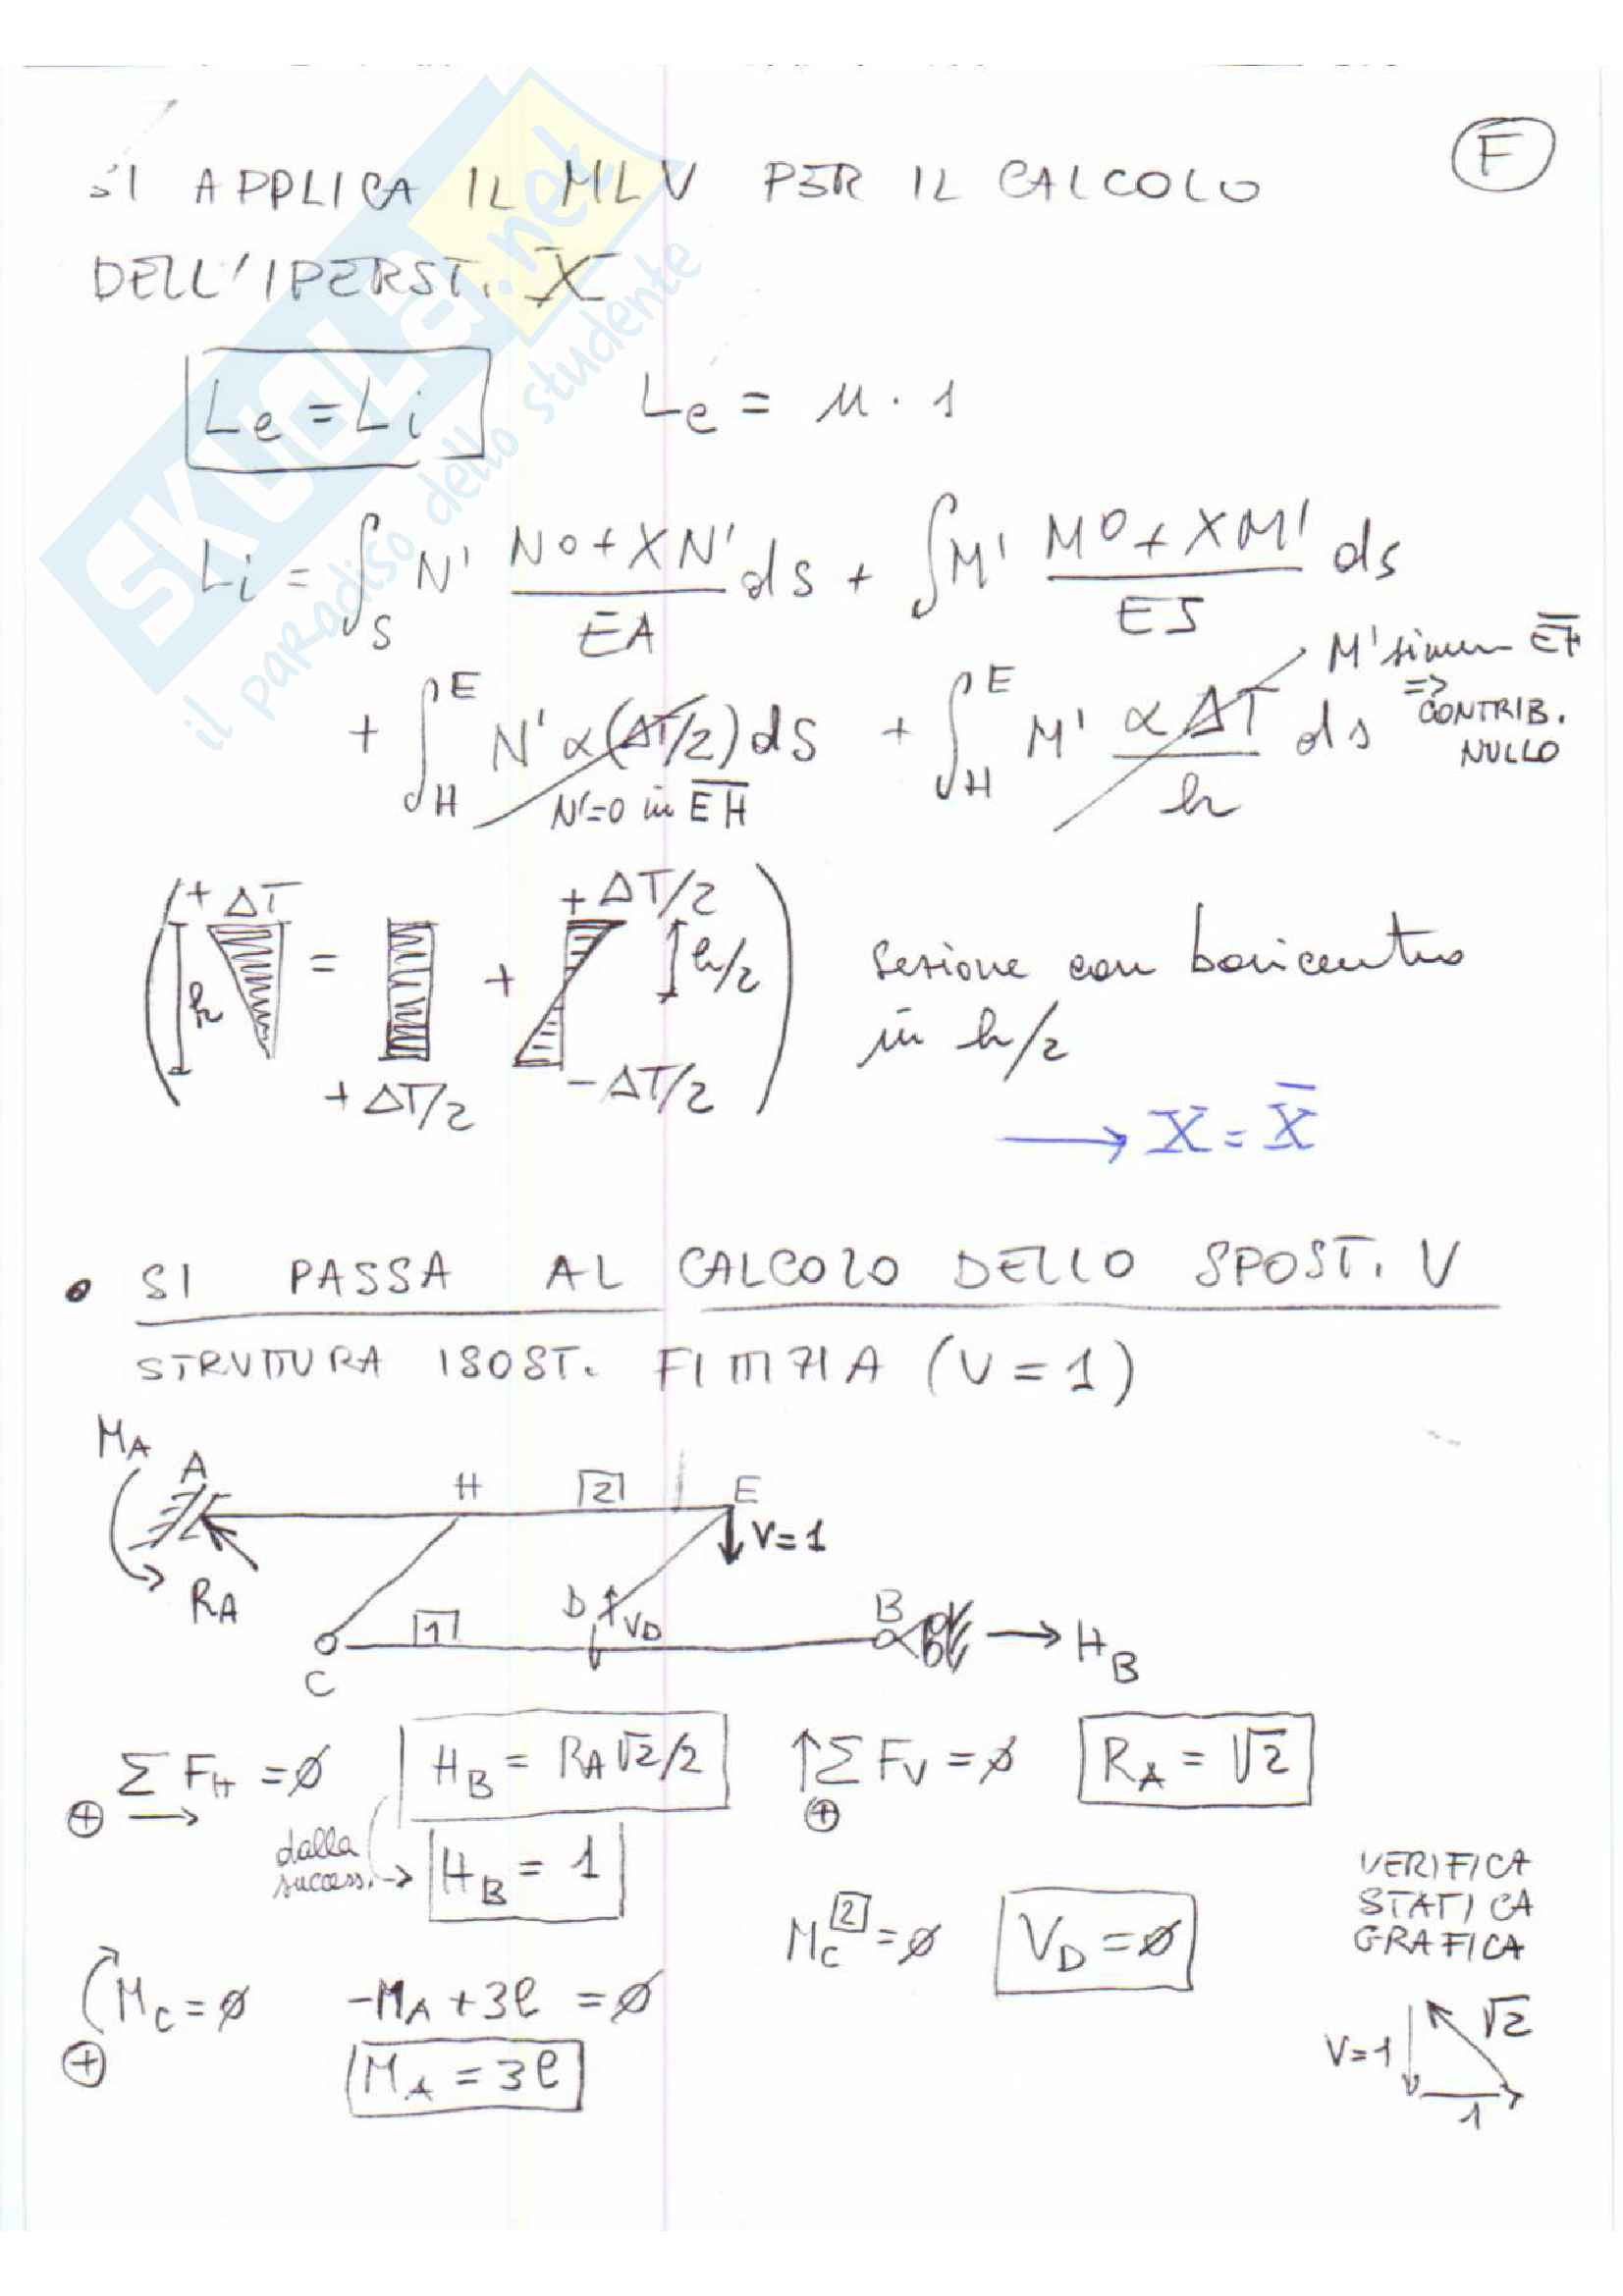 F
SI APPLICA IL MLV PER IL CALCOLO
DELL'IPERST. X
Le = Li   Le = u · 1
Li = ∫S N' (N° + XN')/EA ds + ∫ M' (M° + XM')/EJ ds
+ ∫H^E N' α(ΔT/2) ds + ∫H^E M' αΔT/h ds
N'=0 in EH
M' simm
=> CONTRIB.
NULLO
+ΔT = + +ΔT/2
h h/2
+ΔT/2 -ΔT/2
sezione con baricentro
in h/2
→ X = X̄
• SI PASSA AL CALCOLO DELLO SPOST. V
STRUTTURA ISOST. FITTIZIA (V = 1)
MA A H 2 E
V=1
RA D VD B
1 → HB
C
ΣFH = ∅   HB = RA√2/2   ↑ΣFV = ∅   RA = √2
⊕ → ⊕
dalla
success. → HB = 1
VERIFICA
STATICA
GRAFICA
MC[2] = ∅   VD = ∅
MC = ∅   -MA + 3l = ∅
⊕ MA = 3l
V=1 √2
1
SKUOLA.net
il paradiso dello studente